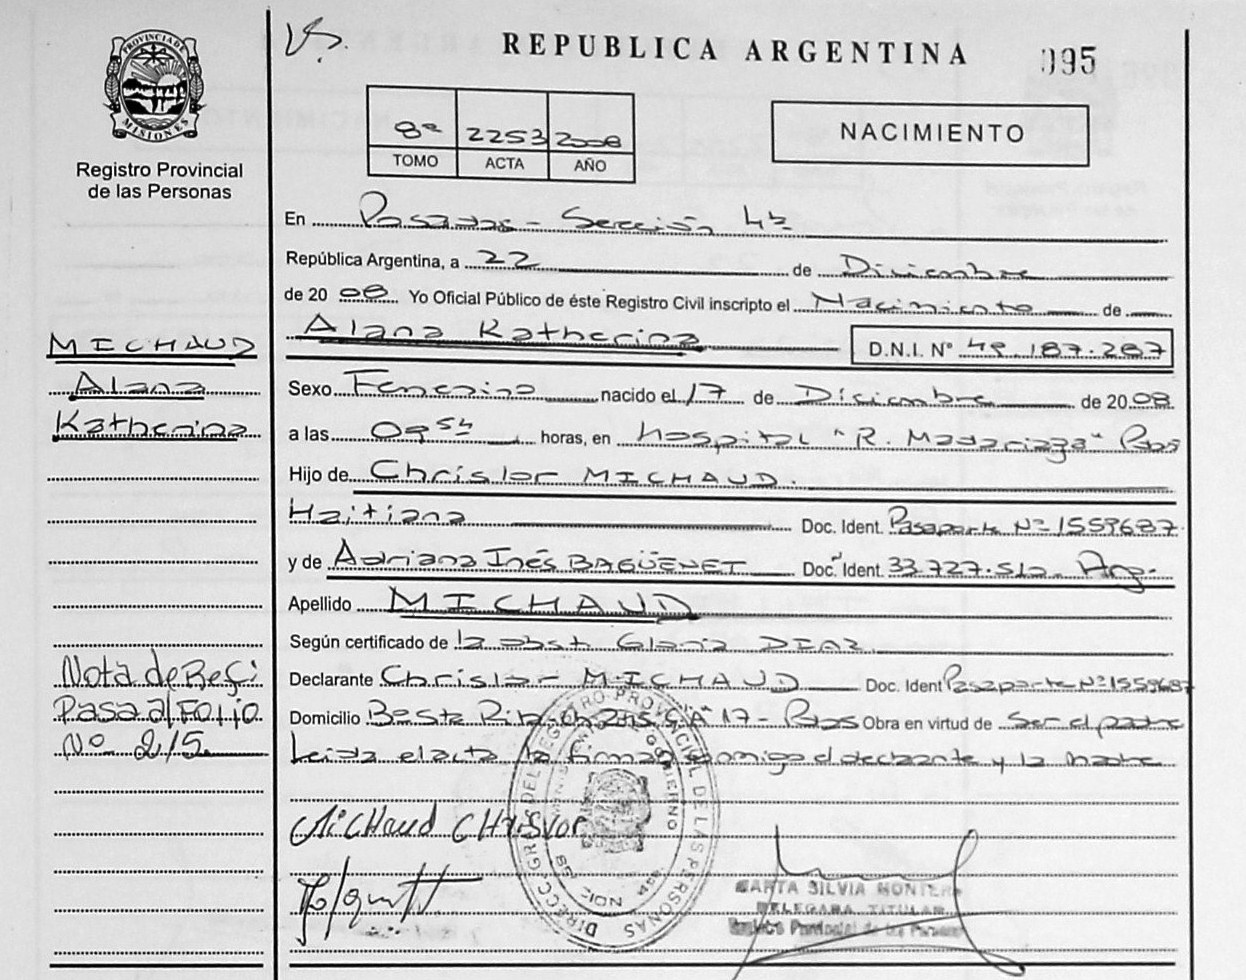 REPUBLICA ARGENTINA
095
PROVINCIA DE MISIONES
Registro Provincial
de las Personas
8º 2253 2008
TOMO ACTA AÑO
NACIMIENTO
En Posadas - Sección 4ª
República Argentina, a 22 de Diciembre
de 2008 Yo Oficial Público de éste Registro Civil inscripto el Nacimiento de
Alana Katherina
D.N.I. Nº 49.187.287
MICHAUD
Alana
Katherina
Sexo Femenino nacido el 17 de Diciembre de 2008
a las 09 horas, en hospital "R. Madariaga" Pdas
Hijo de Chrislor MICHAUD.
Haitiana Doc. Ident. Pasaporte Nº 1559687
y de Adriana Inés BAGÜENET Doc. Ident. 33.727.512 Arg.
Apellido MICHAUD
Según certificado de la obst. Gloria DIAZ
Declarante Chrislor MICHAUD Doc. Ident Pasaporte Nº 1559687
Domicilio 17 - Pdas Obra en virtud de Ser el padre
Leida el acta la firman conmigo el declarante y la madre
Nota de Ref:
Pasa al Folio
Nº 215
MICHaud CHRISLOR
MARTA SILVIA MONTER
DELEGADA TITULAR
Registro Provincial de las Personas
DIRECC. GRAL DEL REGISTRO PROVINCIAL DE LAS PERSONAS